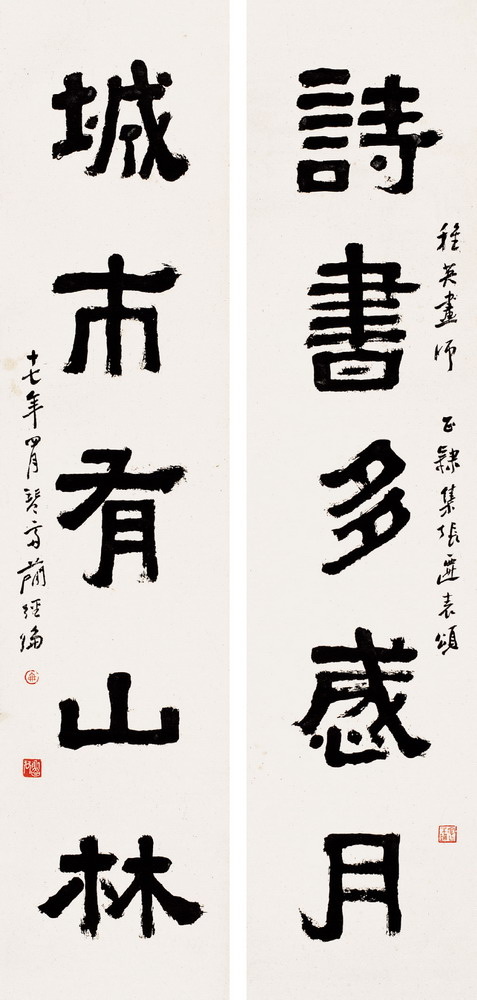 稚英畫師 正隸集張遷表頌
詩書多感月
城市有山林
十七年四月琴齋簡經綸